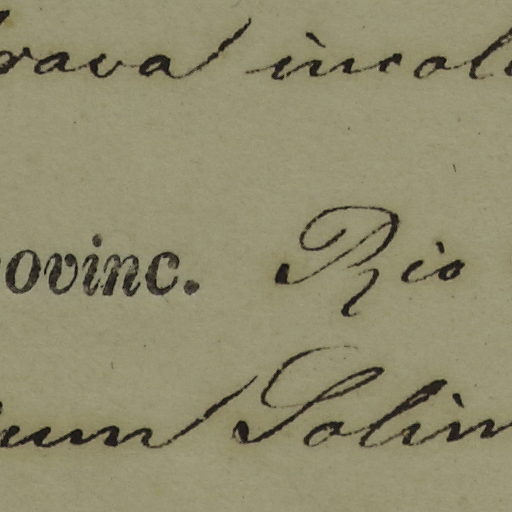 rava incol
ovinc. Rio
um Solim